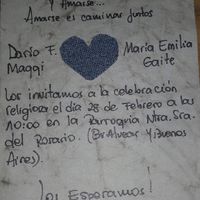 Y Amarse...
Amarse es caminar juntos
Darío F. Maria Emilia
Maggi Gaite
Los invitamos a la celebración
religiosa el día 28 de Febrero a las
10:00 en la Parroquia Ntra. Sra.
del Rosario. (Br. Alvear y Buenos
Aires).
Los Esperamos!